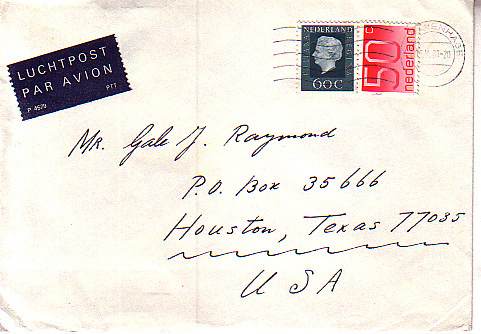 LUCHTPOST
PAR AVION
P 4579 PTT
NEDERLAND
60C
50C
nederland
Mr. Gale J. Raymond
P.O. Box 35666
Houston, Texas 77035
USA